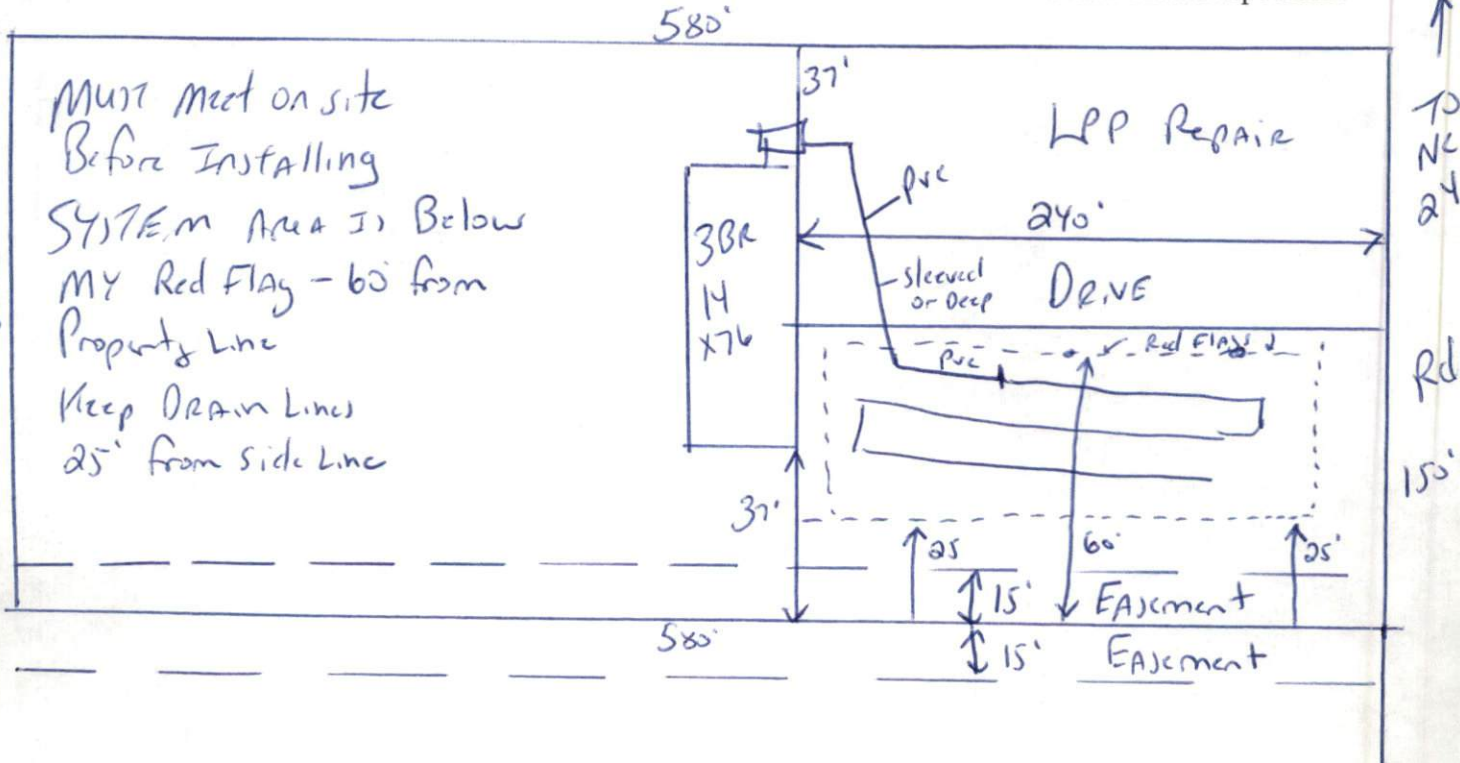 580'
MUST Meet on site
Before Installing
SYSTEM Area Is Below
MY Red Flag - 60' from
Property Line
Keep Drain Lines
25' from Side Line
37'
LPP Repair
PVC
240'
3BR
14
x76
sleeved
or Deep
DRIVE
Red Flags
PVC
37'
25
60'
25'
15'
Easement
580'
15'
Easement
TO
NC
24
Rd
150'